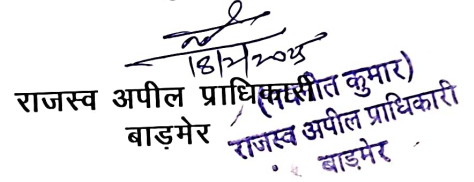 18/2/2025
राजस्व अपील प्राधिकारी
बाड़मेर
कुमार)
राजस्व अपील प्राधिकारी
बाड़मेर